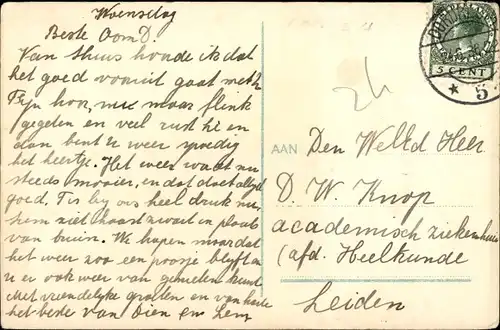 Woensdag
Beste Oom D.
Van thuis hoorde ik dat
het goed vooruit gaat met U.
Fijn hoor, nu maar flink
gegeten en veel rust hè en
dan bent U weer spoedig
het heertje. Het weer wordt nu
steeds mooier, en dat doet altijd
goed. 't Is bij ons heel druk nu,
hem ziet haast zwart in plaats
van bruin. We hopen maar dat
het weer zoo een poosje blijft en
U er ook weer van genieten kunt
Met vriendelijke groeten en van harte
het beste van Dien en Lem
AAN
Den WelEd Heer
D. W. Knop
academisch ziekenhuis
(afd. Heelkunde
Leiden
5 CENT
5